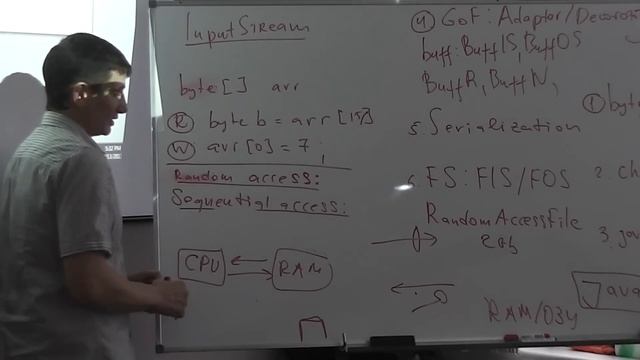 InputStream
byte[] arr
R byte b = arr[15]
W arr[0] = 7;
Random access:
Sequential access:
CPU
RAM
4 GoF: Adaptor/Decorator
buff: BuffIS, BuffOS
BuffR, BuffW,
5. Serialization
6. FS: FIS/FOS
RandomAccessFile
RAM/ОЗУ
1 byte
2. Ch
3.